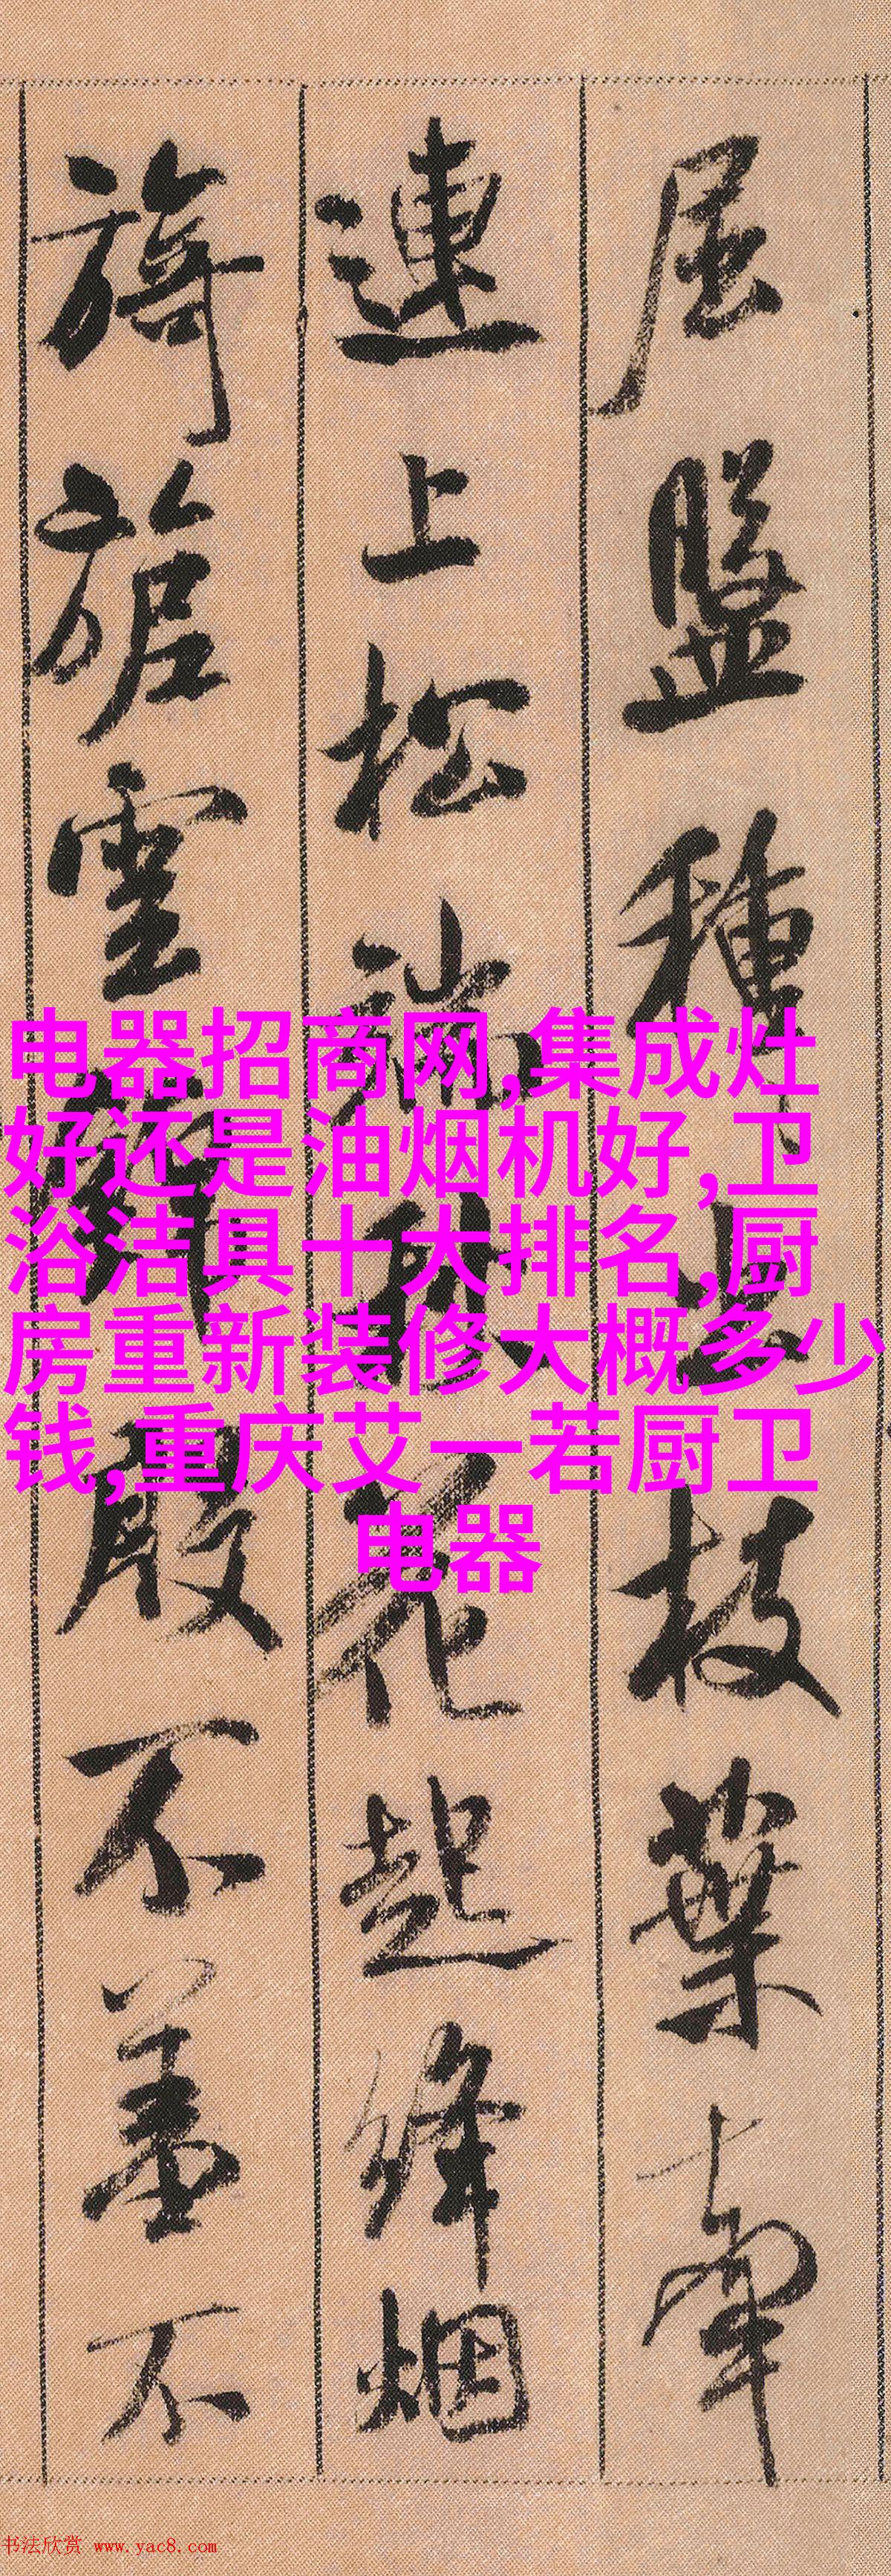 屈盤種出枝葉牽
連上松端秋花起絳烟
旖旎雲錦殷不羞不
电器招商网,集成灶
好还是油烟机好,卫
浴洁具十大排名,厨
房重新装修大概多少
钱,重庆艾一若厨卫
电器
书法欣赏 www.yac8.com